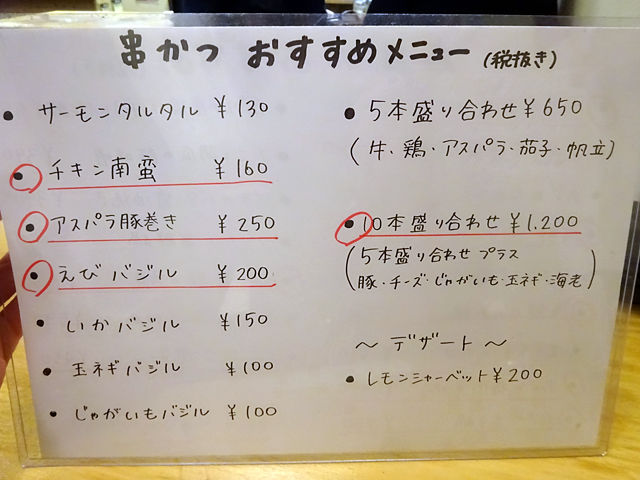 串かつ おすすめメニュー (税抜き)
・サーモンタルタル ¥130
・チキン南蛮 ¥160
・アスパラ豚巻き ¥250
・えびバジル ¥200
・いかバジル ¥150
・玉ネギバジル ¥100
・じゃがいもバジル ¥100
・5本盛り合わせ ¥650
(牛、鶏・アスパラ・茄子・帆立)
・10本盛り合わせ ¥1,200
(5本盛り合わせ プラス
豚・チーズ・じゃがいも・玉ネギ・海老)
〜 デザート 〜
・レモンシャーベット ¥200